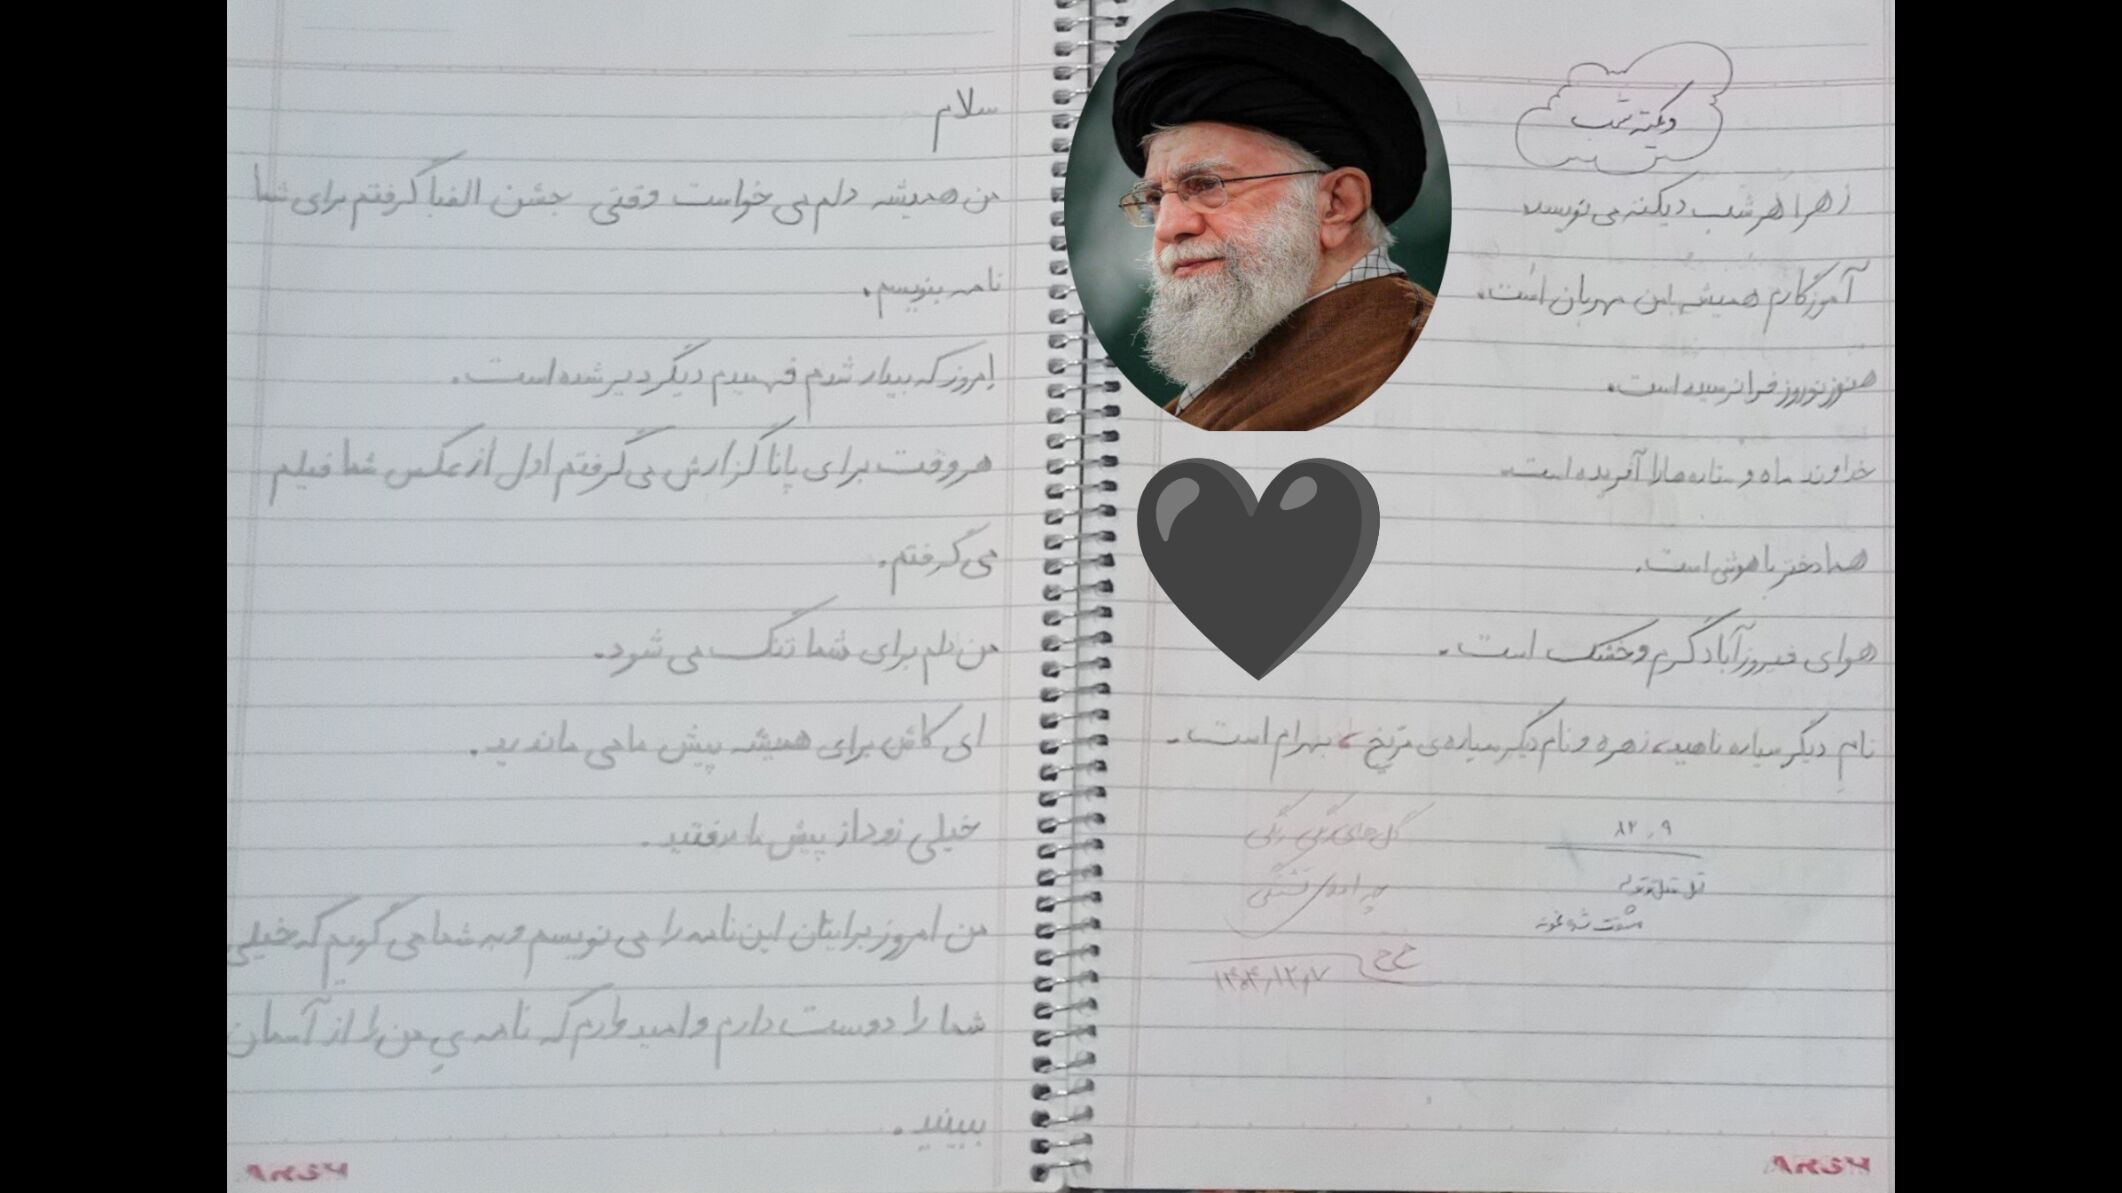 دیکته شب
زهرا هر شب دیکته می نویسد
آموزگارم همیشه با من مهربان است.
هنوز نوروز فرا نرسیده است.
خداوند ماه و ستاره ها را آفریده است.
هما دختر باهوشی است.
هوای فیروزآباد گرم و خشک است.
نام دیگر سیاره ناهید، زهره و نام دیگر سیاره‌ی مریخ، بهرام است.
گل های رنگی رنگی
۱۴۰۴,۱۲,۷
سلام
من همیشه دلم می خواست وقتی جشن الفبا گرفتم برای شما
نامه بنویسم.
امروز که بیدار شدم فهمیدم دیگر دیر شده است.
هر وقت برای پانا گزارش می گرفتم اول از عکس شما فیلم
می گرفتم.
من دلم برای شما تنگ می شود.
ای کاش برای همیشه پیش ما می ماندید.
خیلی زود از پیش ما رفتید.
من امروز برایتان این نامه را می نویسم و به شما می گویم که خیلی
شما را دوست دارم و امیدوارم که نامه ی من را از آسمان
ببینید.